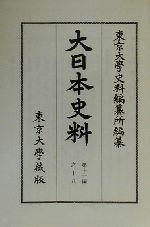 東京大學史料編纂所編纂
大日本史料
第十一編
之十八
東京大學藏版